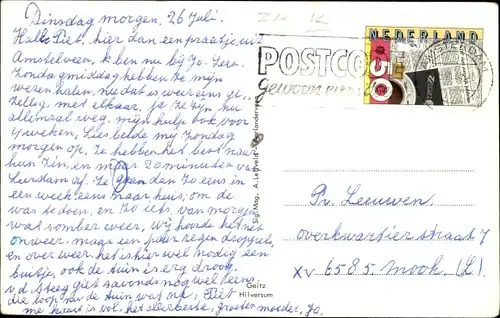 Dinsdag morgen, 26 Juli.
Hallo Piet, hier dan een praatje, uit
Amstelveen, ik ben nu bij Jo.
Zondagmiddag hebben Ze mijn
wezen halen, nu dat is weer eens ge-
zellig, met elkaar, ja Ze Zijn nu
allemaal weg, mijn hulp ook, voor
4 weken, Lies belde mij Zondag
morgen op, Ze hebben het best naar
hun Zin, en maar 20 minuten van
Leerdam af. Ze gaan dan Zo eens in
een week eens naar huis, om de
was te doen, en Zo iets, van morgen
wat somber weer, wij hoorde het net
onweer, maar een paar regen droppels,
en over weer, het is hier wel nodig een
buitje, ook de tuin is erg droog,
v.d. Steeg giet savonds nog wel eens,
die loop naar de tuin wat na, Piet
me kaart is vol, het allerbeste, groeten moeder, Jo,
POSTCO
NEDERLAND
50
Gebr. Leeuwen
overkwartier straat 7
XV 6585. mook (L).
Gaitz
Hilversum